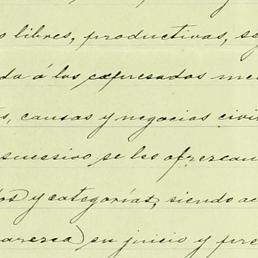 s libres, productivas, se
da á los expresados me
s, causas y negocios civi
sucesivo se les ofrezcan
os) y categorías, siendo ac
arezca) en juicio y pre